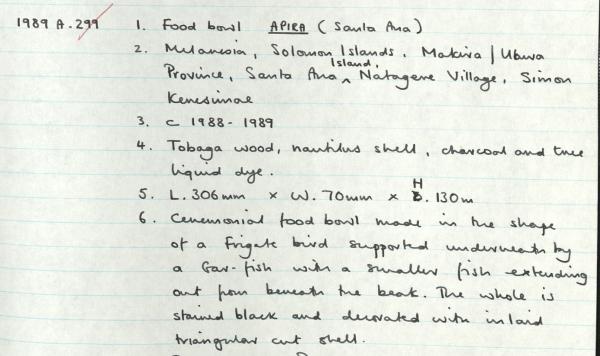 1989 A.299 1. Food bowl APIRA (Santa Ana)
2. Melanesia, Solomon Islands, Makira / Ulawa
Province, Santa Ana Island, Natagera Village, Simon
3. c 1988-1989
4. Tobaga wood, nautilus shell, charcoal and tree
liquid dye.
5. L. 306mm x W. 70mm x H. 130m
6. Ceremonial food bowl made in the shape
of a Frigate bird supported underneath by
a Gar-fish with a smaller fish extending
out from beneath the beak. The whole is
stained black and decorated with inlaid
triangular cut shell.